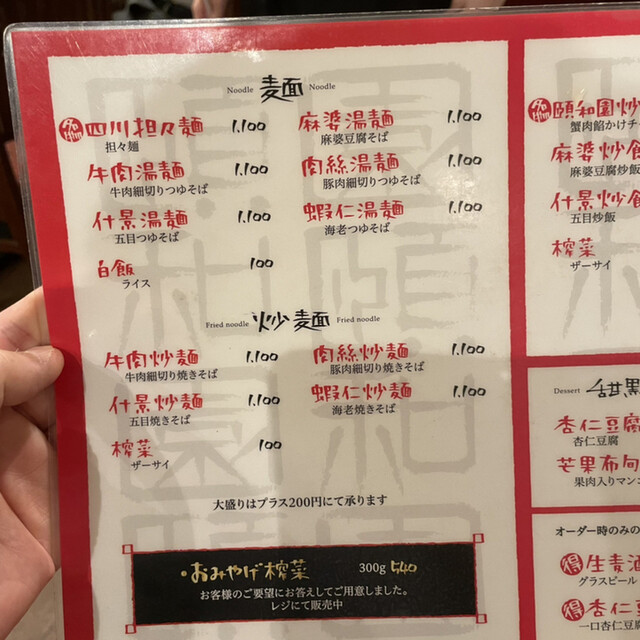 Noodle 麺面 Noodle
名物 四川担々麺 1,100
担々麺
麻婆湯麺 1,100
麻婆豆腐そば
牛肉湯麺 1,100
牛肉細切りつゆそば
肉絲湯麺 1,100
豚肉細切りつゆそば
什景湯麺 1,100
五目つゆそば
蝦仁湯麺 1,100
海老つゆそば
白飯 100
ライス
Fried noodle 炒麺 Fried noodle
牛肉炒麺 1,100
牛肉細切り焼きそば
肉絲炒麺 1,100
豚肉細切り焼きそば
什景炒麺 1,100
五目焼きそば
蝦仁炒麺 1,100
海老焼きそば
搾菜 100
ザーサイ
大盛りはプラス200円にて承ります
・おみやげ搾菜 300g 540
お客様のご要望にお答えしてご用意しました。
レジにて販売中
名物 頤和園炒
蟹肉餡かけチャ
麻婆炒飯
麻婆豆腐炒飯
什景炒飯
五目炒飯
搾菜
ザーサイ
Dessert 甜
杏仁豆腐
杏仁豆腐
芒果布甸
果肉入りマンゴ
オーダー時のみの
得 生麦酒
グラスビール
得 杏仁豆
一口杏仁豆腐